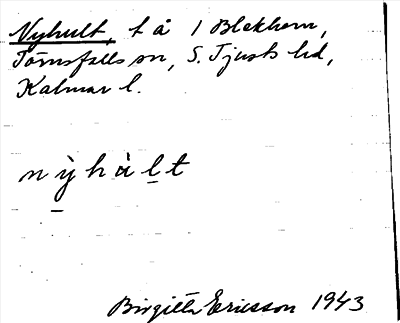 Nyhult, t å 1 Blekhem,
Törnsfalls sn, S. Tjusts hd,
Kalmar l.
nỳhàl̠t
Birgitta Ericsson 1943